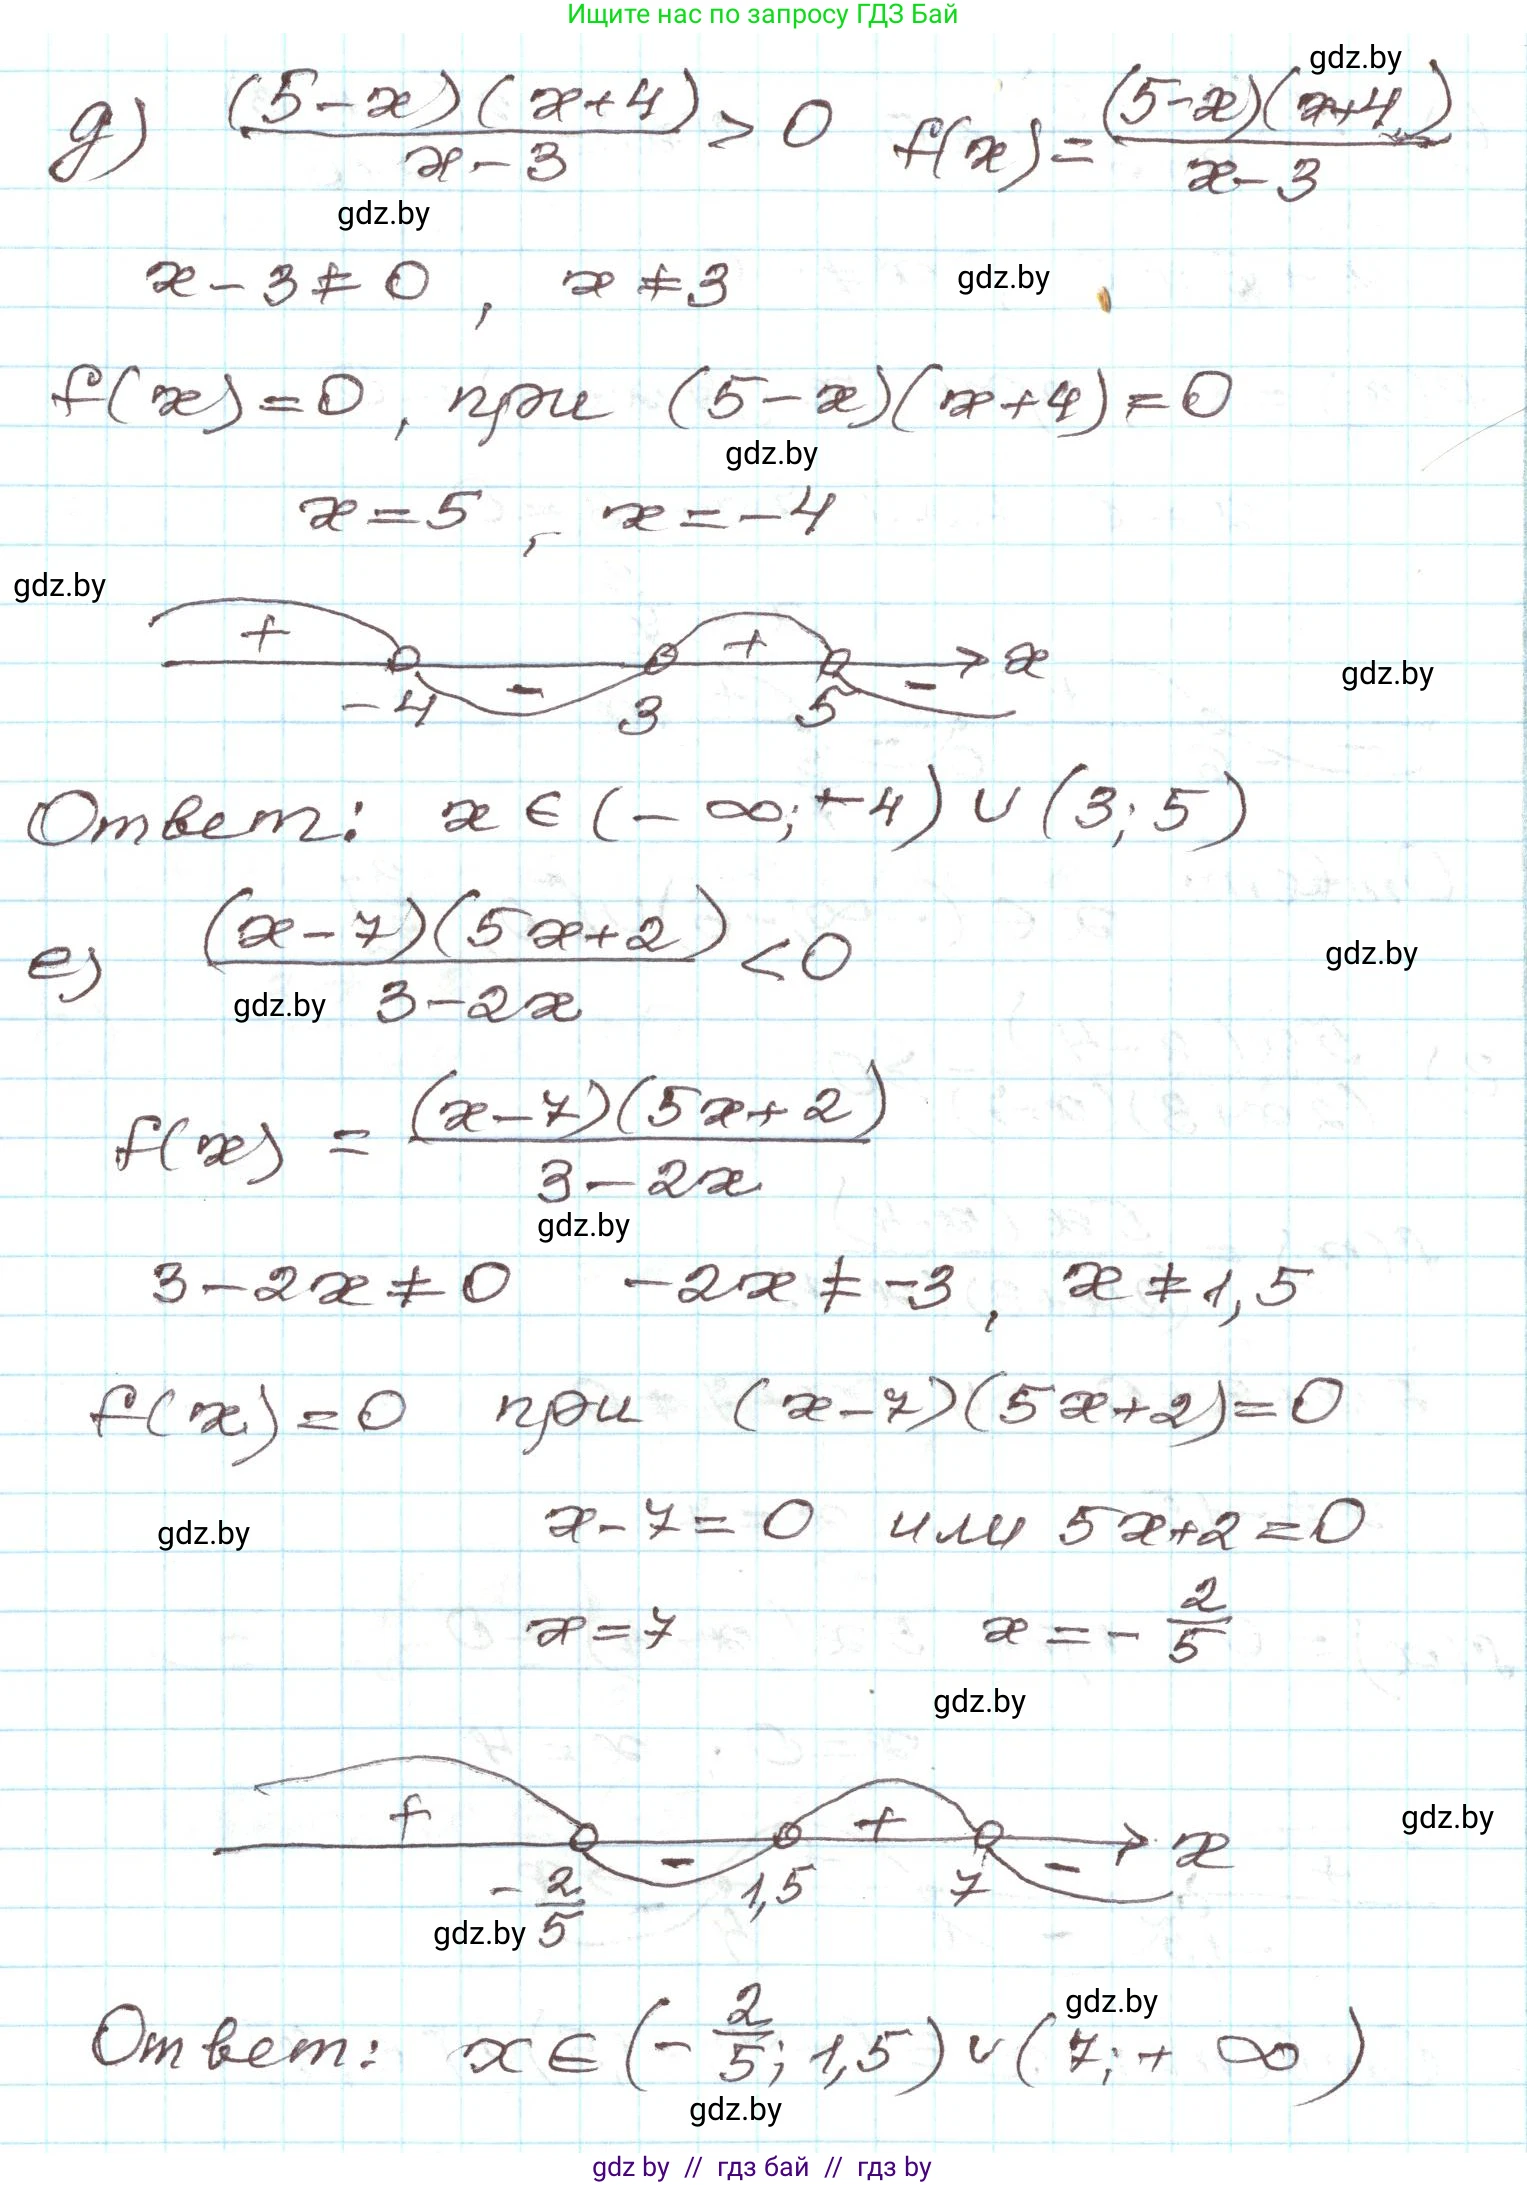 Ищите нас по запросу ГДЗ Бай
gdz.by
д) (5-x)(x+4)/(x-3) > 0 f(x) = (5-x)(x+4)/(x-3)
gdz.by
x-3≠0, x≠3 gdz.by
f(x)=0, при (5-x)(x+4)=0
gdz.by
x=5, x=-4
gdz.by
+ - + - x
-4 3 5
gdz.by
Ответ: x∈(-∞;-4)∪(3;5)
е) (x-7)(5x+2)/(3-2x) <0
gdz.by
gdz.by
f(x) = (x-7)(5x+2)/(3-2x)
gdz.by
3-2x≠0 -2x≠-3, x≠1,5
f(x)=0 при (x-7)(5x+2)=0
gdz.by x-7=0 или 5x+2=0
x=7 x=-2/5
gdz.by
gdz.by
+ - + - x
-2/5 1,5 7
gdz.by
gdz.by
Ответ: x∈(-2/5;1,5)∪(7;+∞)
gdz.by
gdz by // гдз бай // гдз by